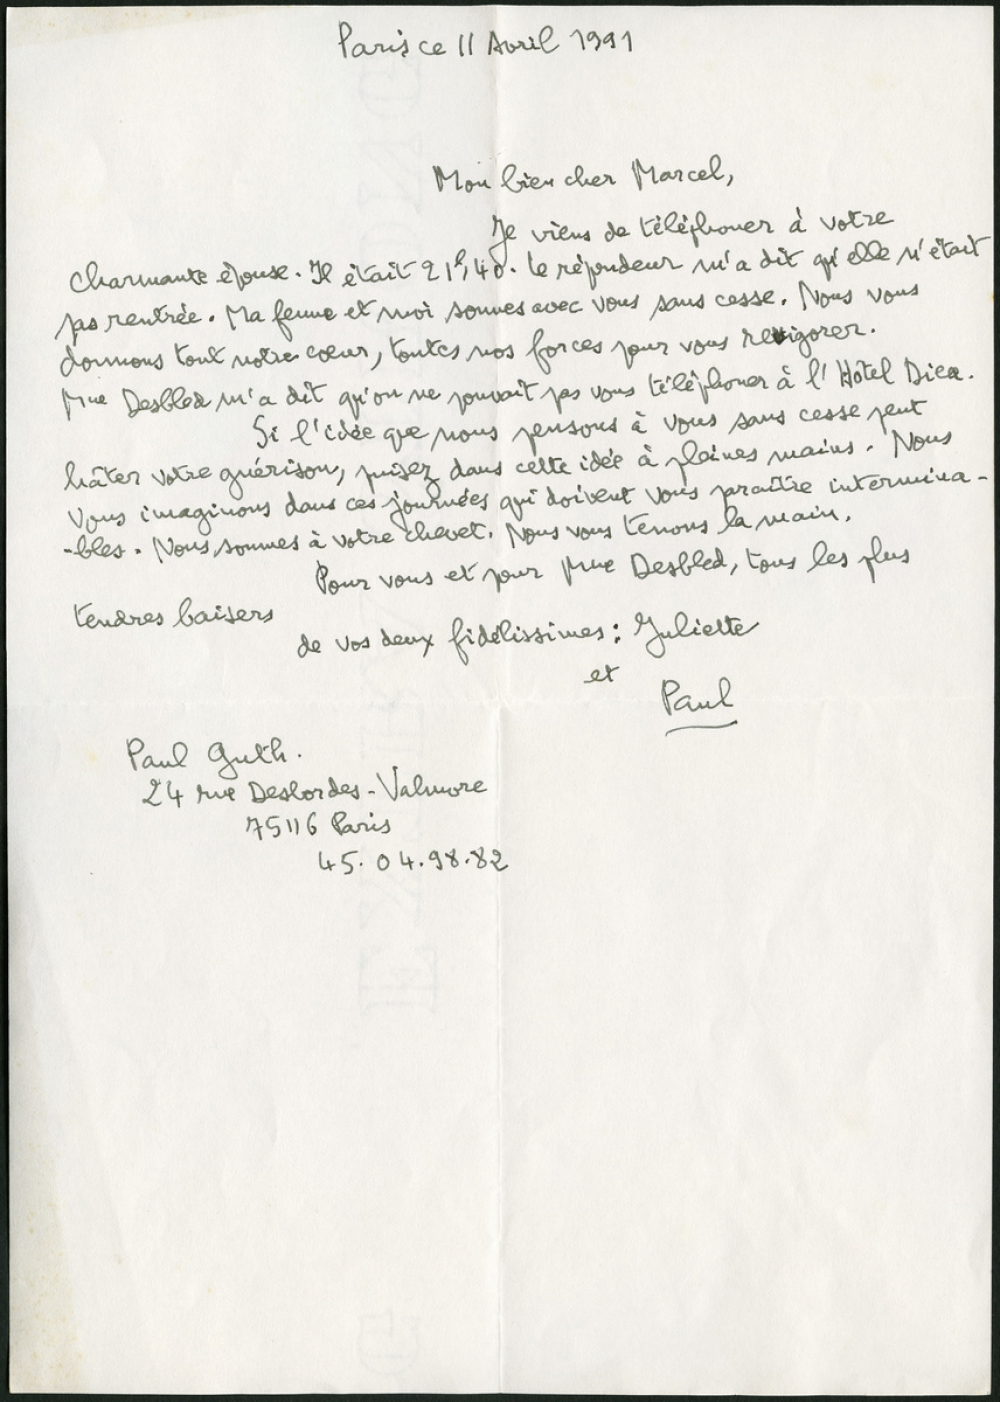 Paris ce 11 Avril 1991
Mon bien cher Marcel,
Je viens de téléphoner à votre
charmante épouse. Il était 21h,40. Le répondeur m'a dit qu'elle n'était
pas rentrée. Ma femme et moi sommes avec vous sans cesse. Nous vous
donnons tout notre cœur, toutes nos forces pour vous revigorer.
Mme Desbled m'a dit qu'on ne pouvait pas vous téléphoner à l'Hôtel Dieu.
Si l'idée que nous pensons à vous sans cesse peut
hâter votre guérison, puisez dans cette idée à pleines mains. Nous
vous imaginons dans ces journées qui doivent vous paraître intermina-
-bles. Nous sommes à votre chevet. Nous vous tenons la main.
Pour vous et pour Mme Desbled, tous les plus
tendres baisers
de vos deux fidélissimes : Juliette
et
Paul
Paul Guth.
24 rue Desbordes-Valmore
75116 Paris
45.04.98.82